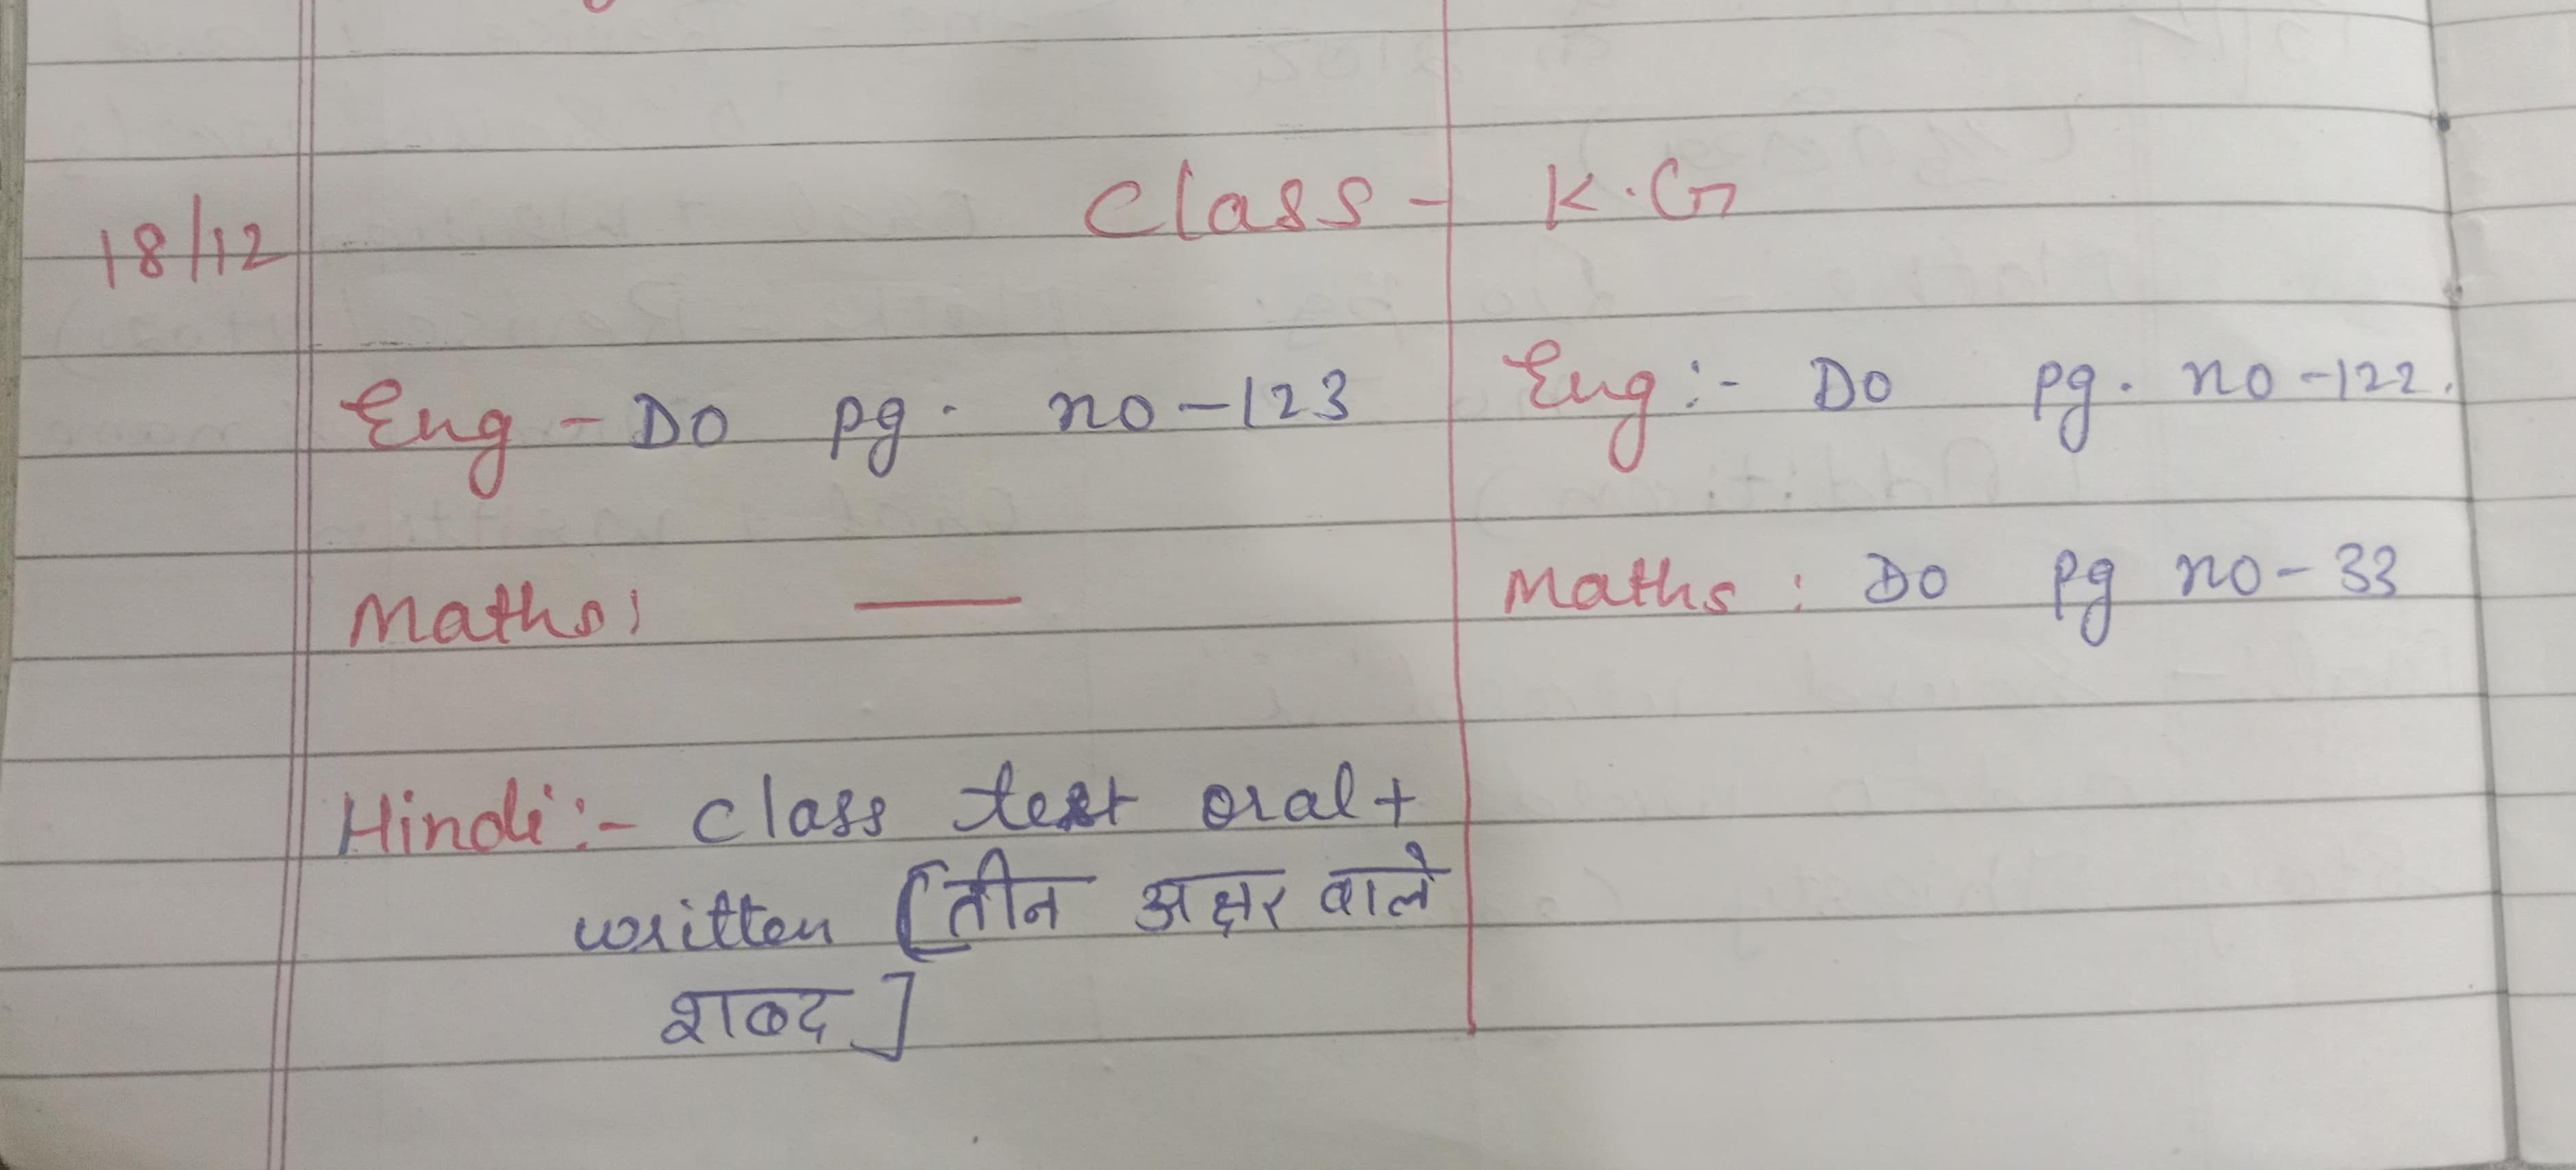 18/12
Class - K.G
Eng - Do pg. no - 123
Maths: —
Hindi :- class test oral +
written [तीन अक्षर वाले
शब्द]
Eng :- Do pg. no - 122.
Maths : Do pg no - 33